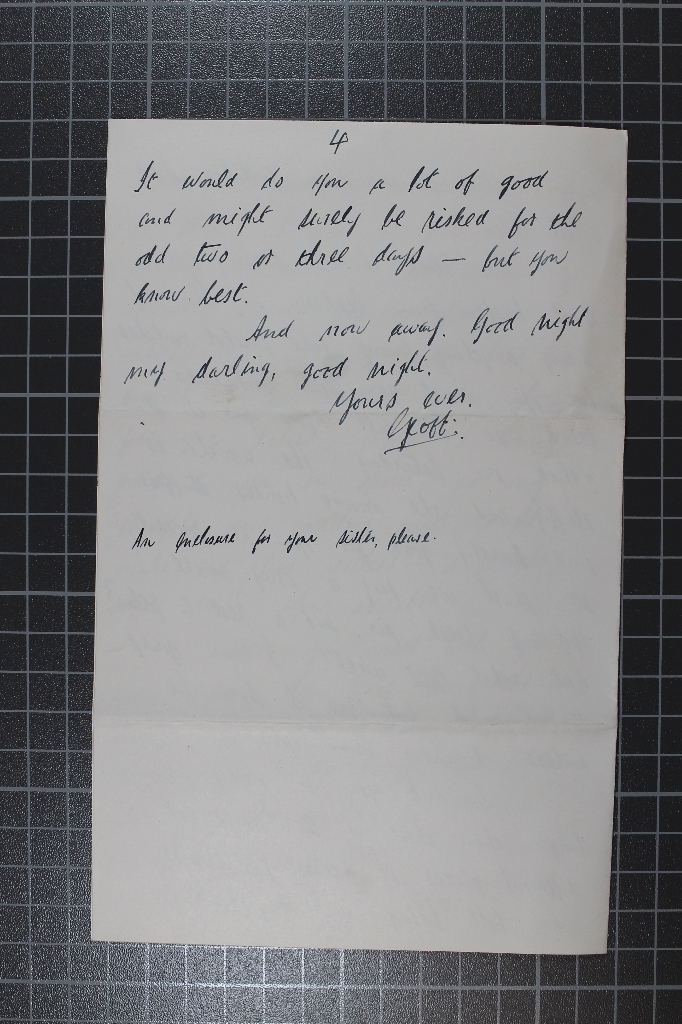 4
It would do you a lot of good
and might surely be risked for the
odd two or three days — but you
know best.
And now away. Good night
my darling, good night.
Yours ever.
Geoff.
An enclosure for your sister, please.